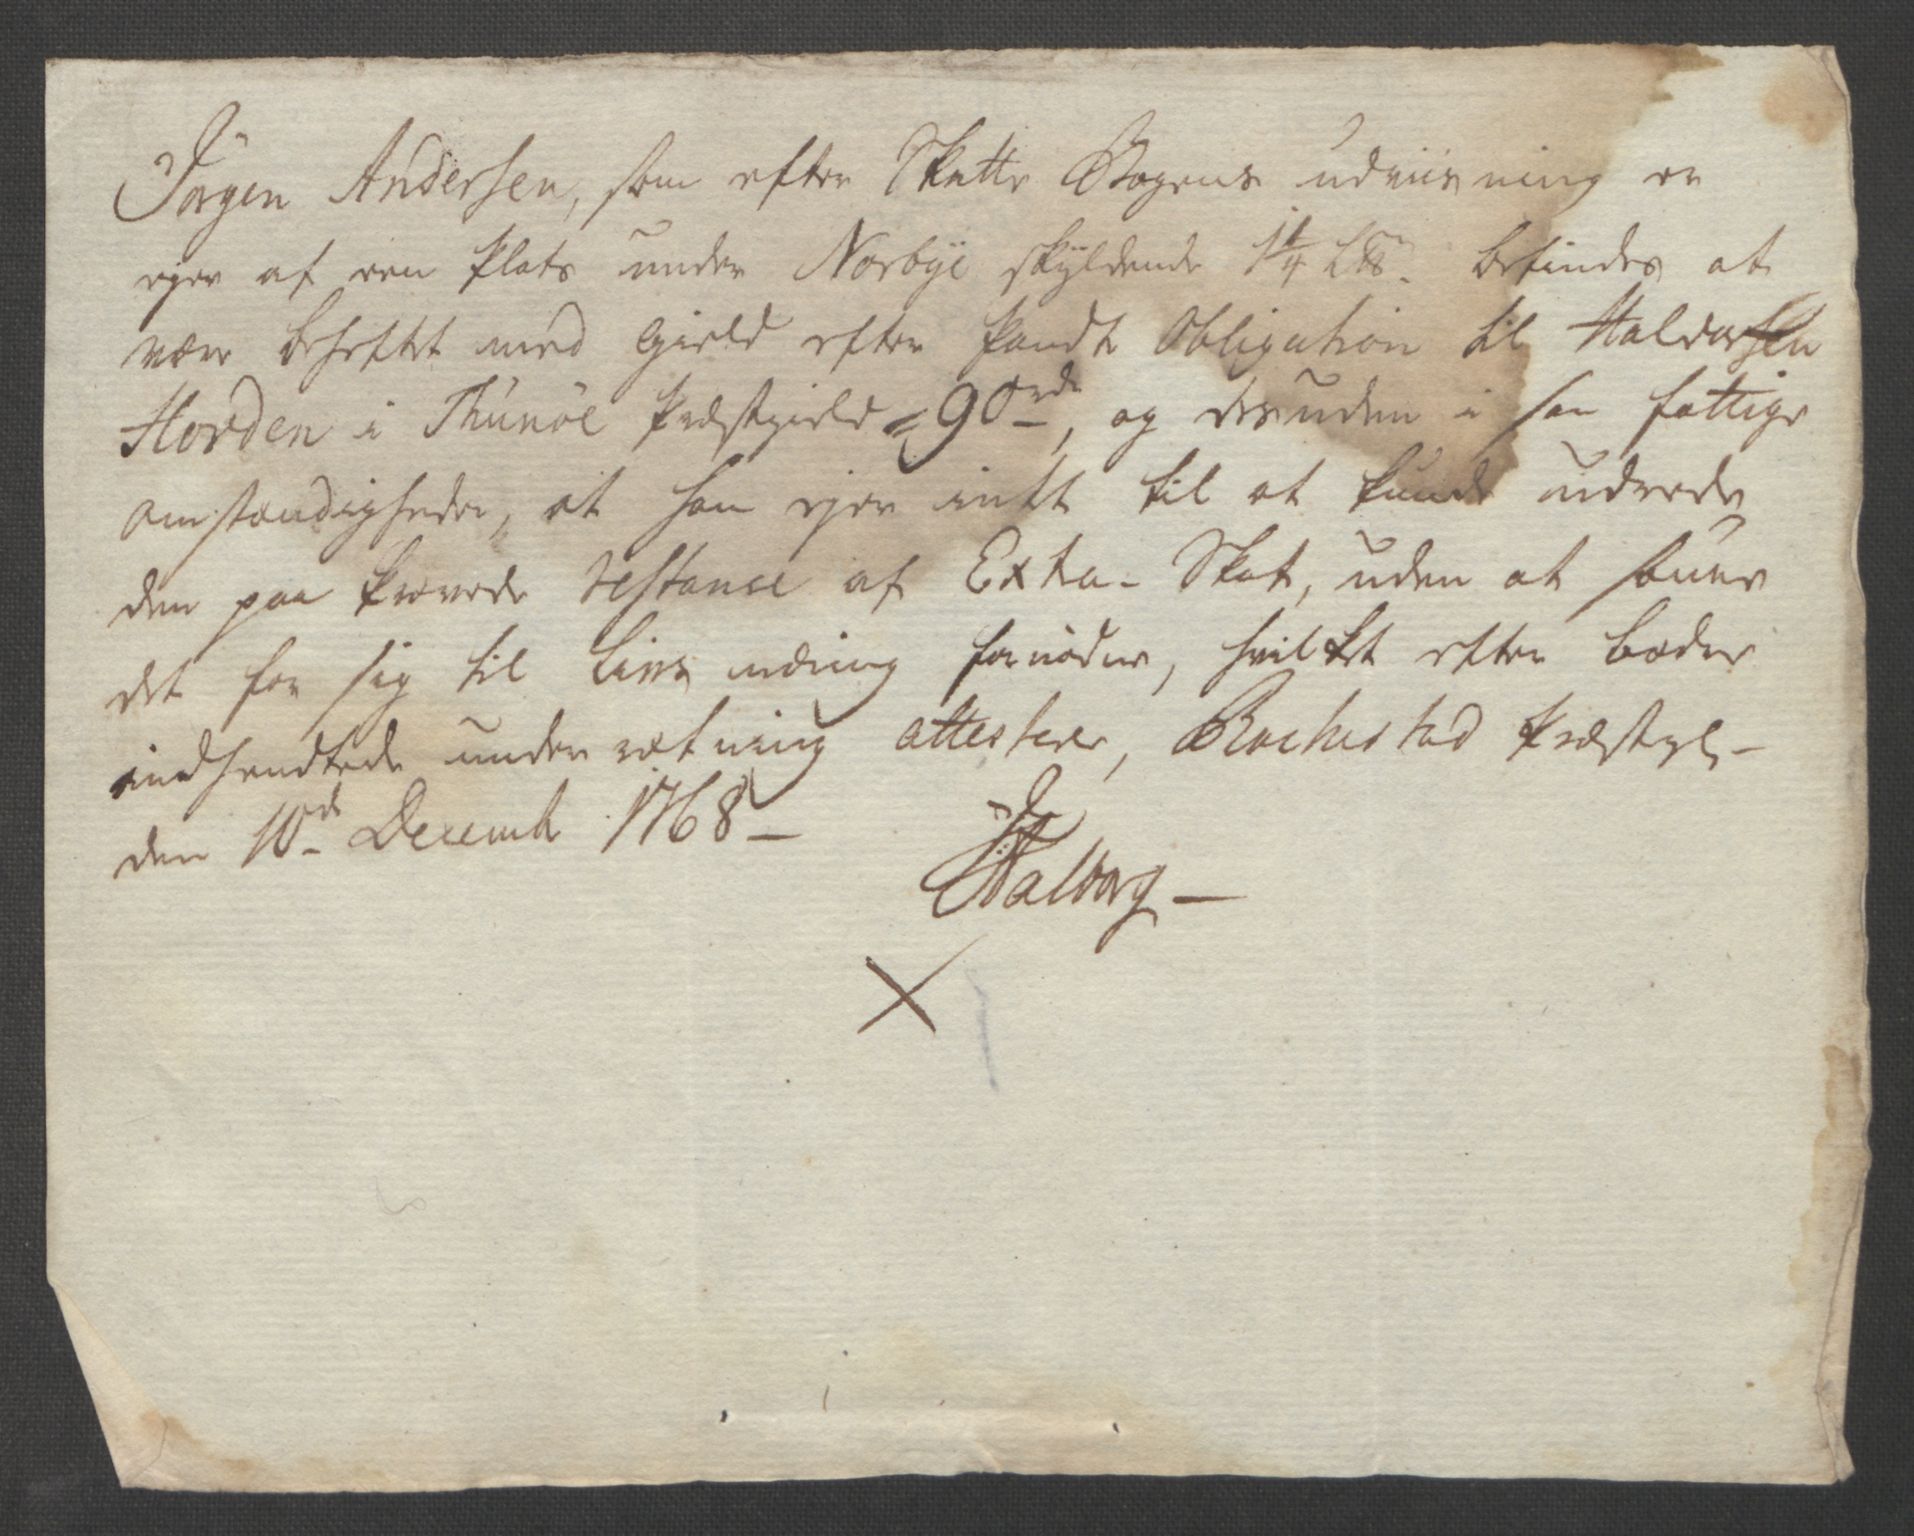 Jørgen Andersen, som efter Skatte Bogens udviisning er
ejer af een Plats under Norbye skyldende 1 1/4 L℔. befindes at
være behæftet med Gield efter Pandt Obligation til Haldorsen
Horden i Thunöe Præstgield = 90 rdr, og desuden i saa fattige
omstændigheder, at han ejer intet til at kunde udrede
den paa krævede restance af Extra-Skat, uden at 
det for sig til Livs næring fornøden, hvilket efter 
indhendtede underretning attesterer, Rachestad Præstgl-
den 10de Decemb 1768-
J Aalborg-